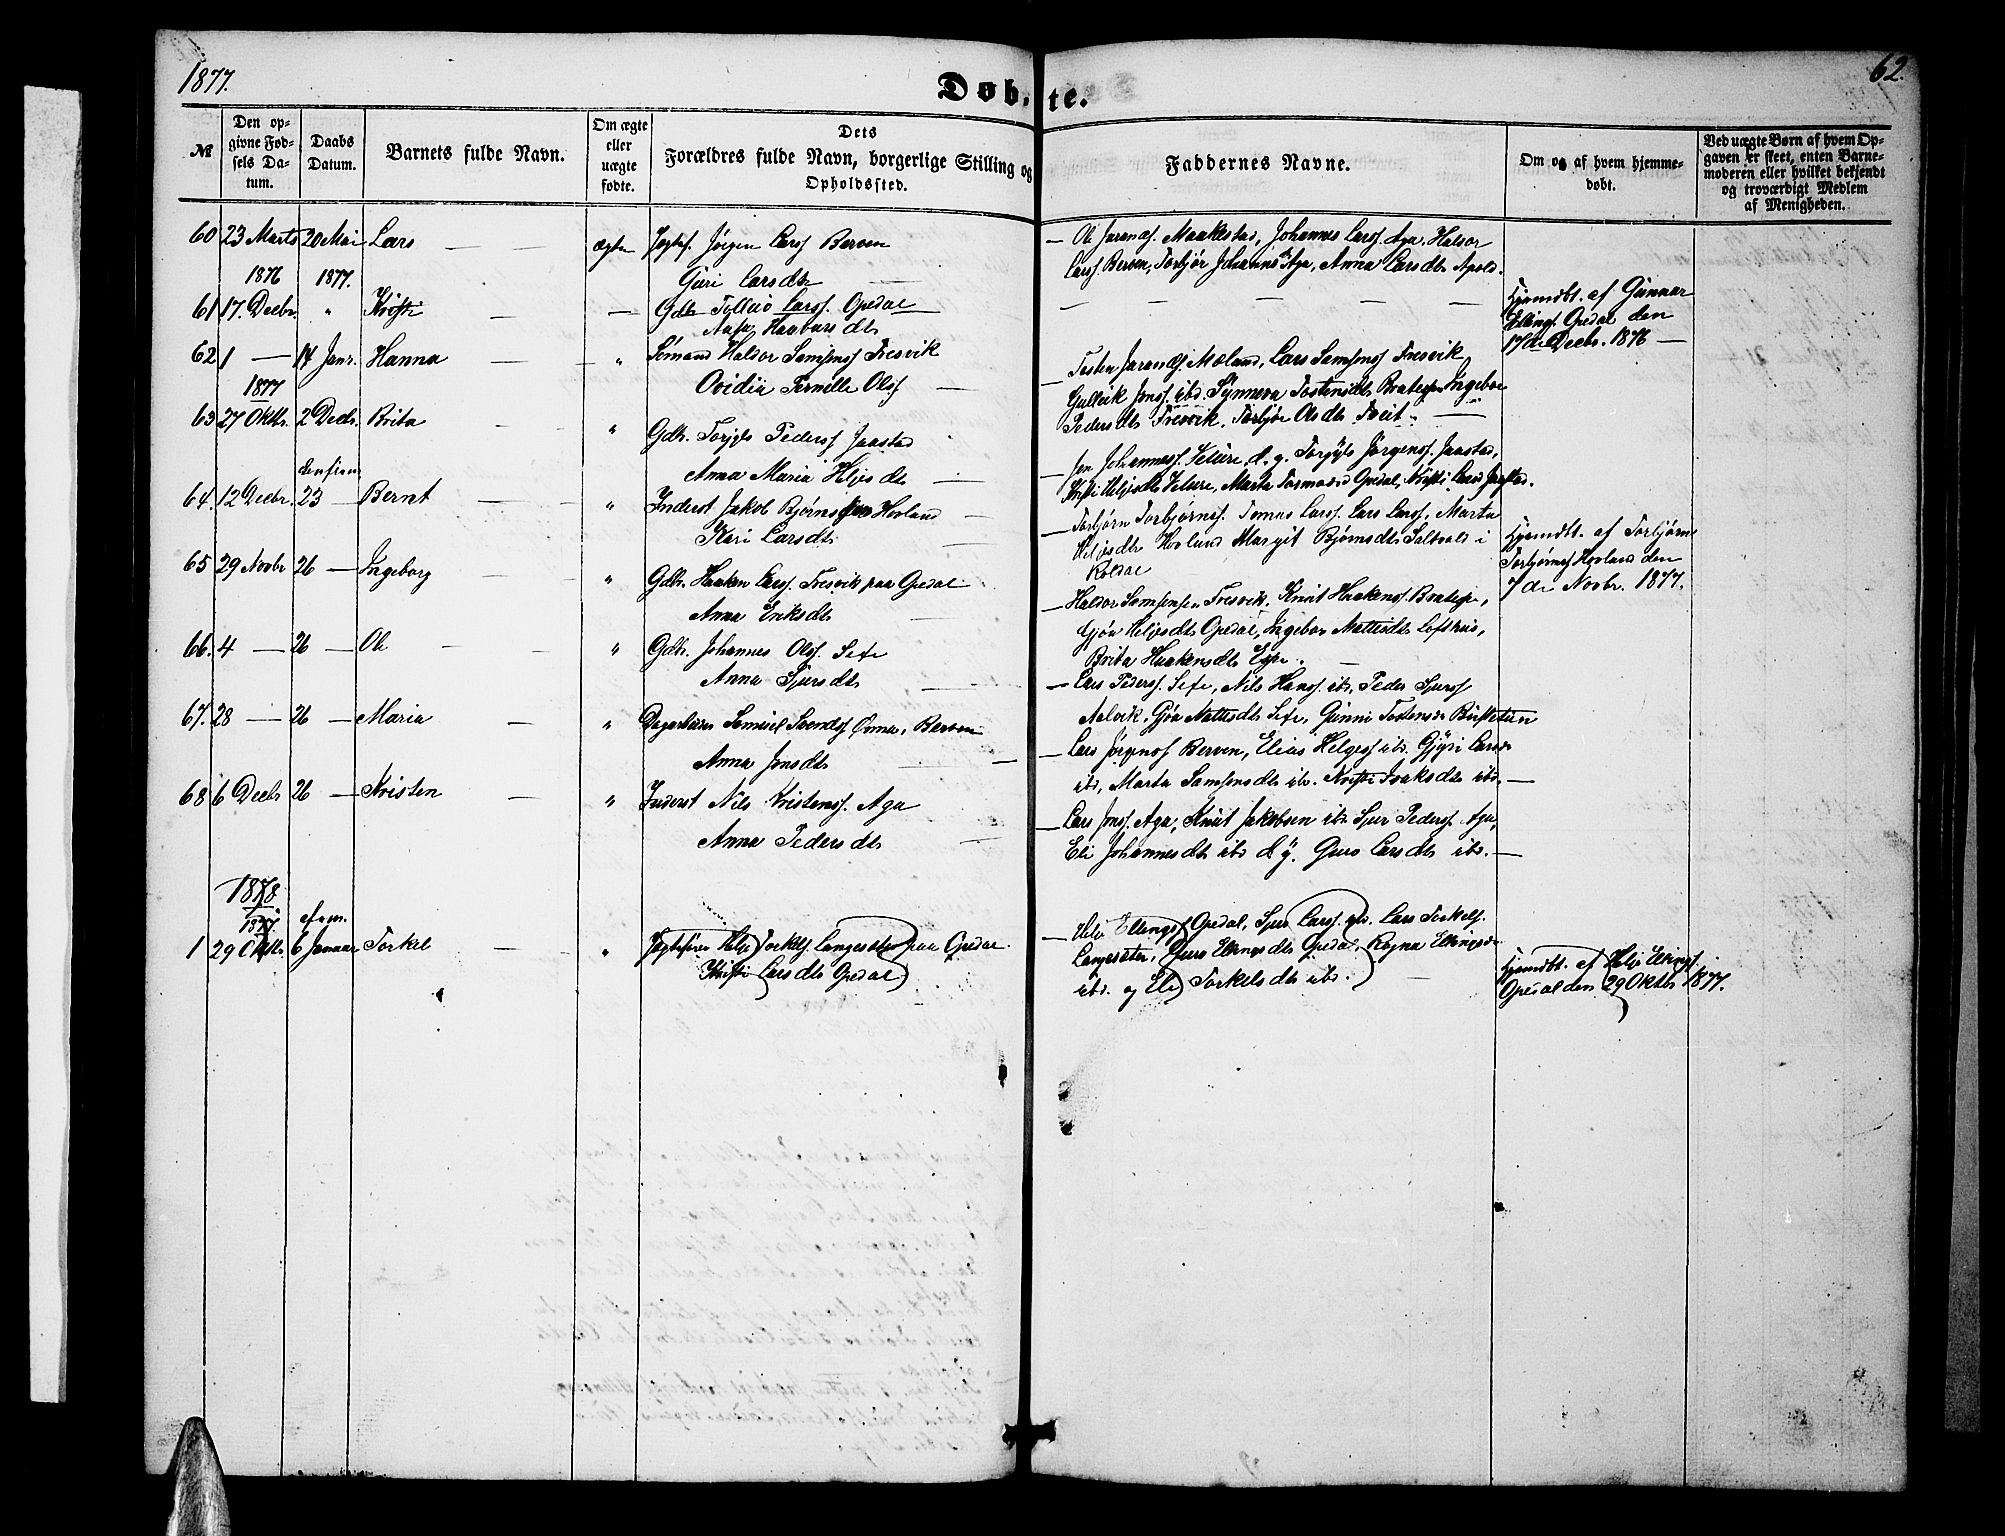 1877.
62.
Døbte.
№
Den opgivne Fødsels Datum.
Daabs Datum.
Barnets fulde Navn.
Om ægte eller uægte fødte.
Dets Forældres fulde Navn, borgerlige Stilling og Opholdssted.
Faddernes Navne.
Om og af hvem hjemmedøbt.
Ved uægte Børn af hvem Opgaven er skeet, enten Barnemoderen eller hvilket bekjendt og troværdigt Medlem af Menigheden.
60 23 Marts 20 Mai Lars — — ægte Jørgen Larss Berven
Guri Larsdtr —
— Ole Maakestad, Johannes Larss. Aga, Haldor
Larss Berven, Torbjør Aga, Anna Larsdtr Apold.
1876 1877.
61 17. Decbr. " Kristi — — Gdbr. Larss. Opedal
— — — — —
Hjemdbt. af Gunnar
Ellings. Opedal den
17de Decbr. 1876 —
62 1 — 14 Janr. Hanna — " Sømand Haldor Samsons Tresvik
Ovidia Pernille Olsd —
— Tosten Mæland, Lars Samsons Tresvik
Gullik Jonss. ibd. Synneva Tostensdtr
Pedersdtr Tresvik, Torbjør Olsdtr Tveit —
1877
63 27 Oktbr. 2 Decbr. Brita — " Gdbr. Torjyls Pederss Jaastad
Anna Maria Heljesdtr —
— Johanness. Velure, Torjyls Jørgenss. Jaastad,
Kristi Heljesdtr Velure, Marta Opedal, Kristi Larsd Jaastad.
64. 12 Decbr. 23 — Bernt — " Inderst Jakob Hovland —
Kari Larsdtr
— Torbjørn Torbjørns. Larss. Lars Larss. Marta
Heljesdtr Hovland Margit Bjørnsdtr i
Røldal
Hjemdbt. af Torbjørn
Torbjørns Hovland den
7de Novbr. 1877.
65 29 Novbr 26 — Ingeborg — " Gdbr. Haaken Larss. Tresvik paa Opedal
Anna Eriksdtr —
— Haldor Samsonsen Tresvik. Knut Haakens
Gjøa Heljesdtr Opedal, Ingebor Mattisdtr Lofthus,
Brita Haakensdtr —
66. 4 — 26 — Ole — — " Gdbr. Johannes Olss. Sexe
Anna Sjursdtr —
— Lars Pederss. Sexe, Nils Hanss ibd, Peder Sjurss
Aalvik, Gjøa Mattisdtr Sexe, Gunni
67. 28 — 26 — Maria — " Samuel Berven
Anna Jonsdtr — —
— Lars Jørgenss Berven, Elias Helgess ibd.
ibd, Marta Samsonsdtr ibd. Isaksdtr ibd. —
68 6 Decbr 26 — Kristen — " Inderst Nils Kristenss. Aga
Anna Pedersdtr —
— Lars Jonss. Aga, Knut Jakobsen ibd Sjur Pederss. Aga,
Eli Johannesdtr ibd d y. Guro Larsdtr ibd. —
1878
1877.
1 29 Oktbr. 6 Januar Torkel — " Helje Torkels. Langesæter paa Opedal.
Kristi Larsdtr Opedal
— Helje Ellings Opedal, Sjur Larss. ibd. Lars Torkels.
Langesæter, Guro Ellingsdtr Opedal, Ragna Ellingsdr
ibd. og Eli Torkelsdtr ibd. —
Hjemdbt. af Helje Ellings.
Opedal den 29 Oktbr 1877.